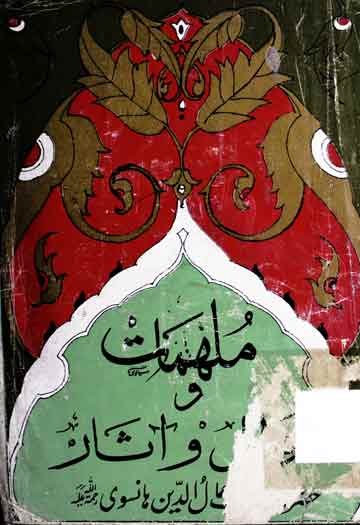 مُلھمَات
و
وآثار
حضر
الُ الدّین ہانسوی رحمۃ اللہ علیہ